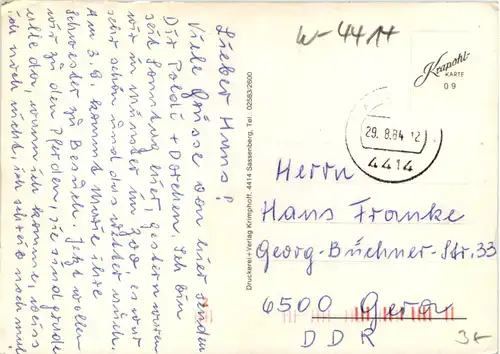 Lieber Hans!
Viele Grüsse von hier senden
Dir Poldi + Dorchen. Ich bin
seit Sonntag hier, gestern waren
wir in Münster im Zoo, es war
sehr schön und das Wetter auch.
Am 3.9. kommt Marie ihre
Schwester zu Besuch. Jetzt wollen
wir zu den Pferden, sie sind gerade
alle da, wann ich komme, weiss
ich noch nicht, ich schreib noch mal
Druckerei + Verlag Krimphoff, 4414 Sassenberg, Tel. 02583/2600
W-4414
Krapohl-
KARTE
09
29.8.84-12
4414
Herrn
Hans Franke
Georg-Büchner-Str. 33
6500 Gera
DDR